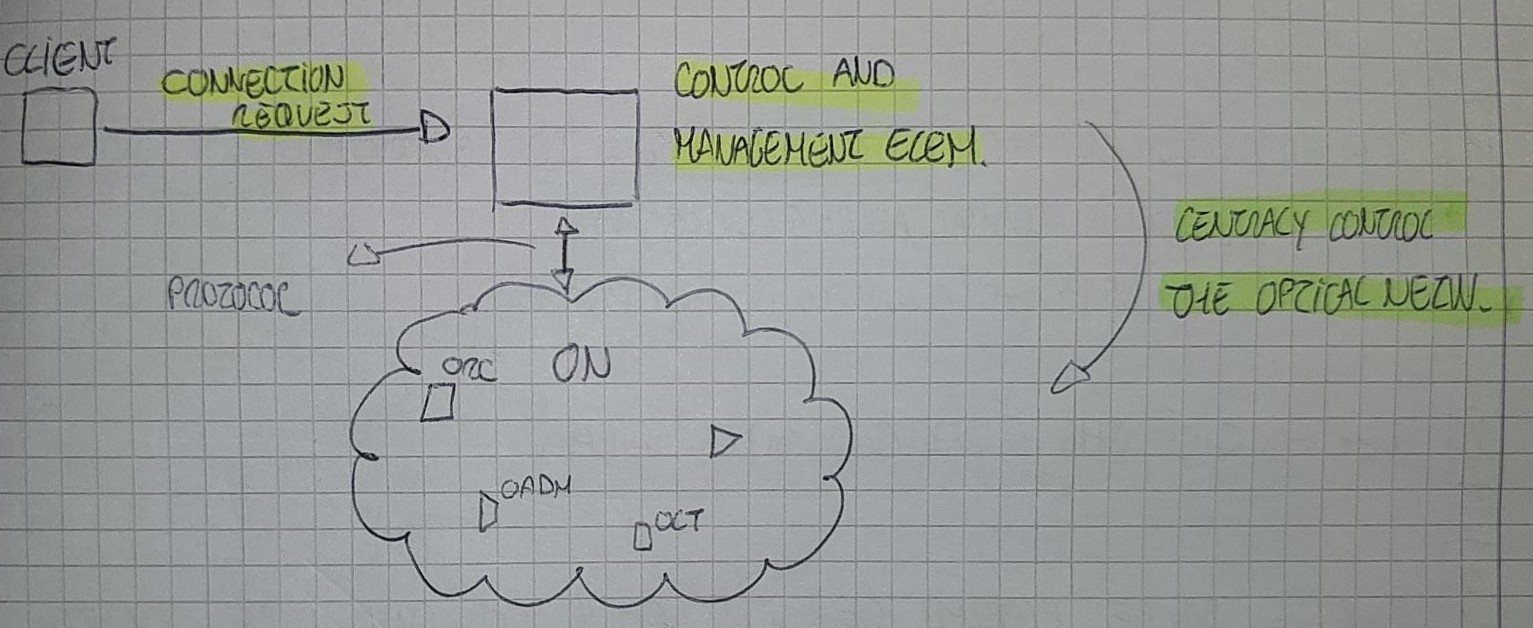 CLIENT
CONNECTION
REQUEST
CONTROL AND
MANAGEMENT ELEM.
CENTRALY CONTROL
THE OPTICAL NETW.
PROTOCOL
ON
OADM
OLT